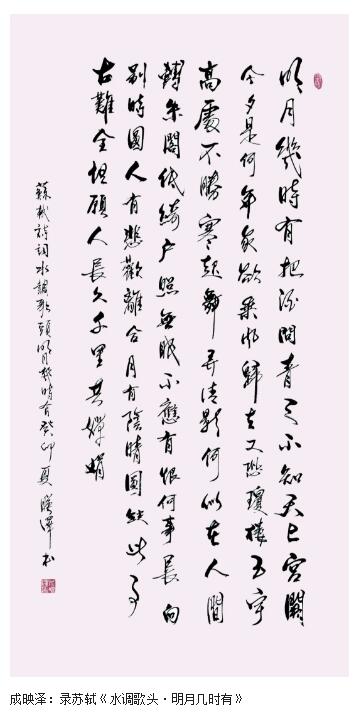 明月幾時有把酒問青天不知天上宮闕
今夕是何年我欲乘風歸去又恐瓊樓玉宇
高處不勝寒起舞弄清影何似在人間
轉朱閣低綺户照無眠不應有恨何事長向
别時圓人有悲歡離合月有陰晴圓缺此事
古難全但願人長久千里共嬋娟
蘇軾詩詞水調歌頭明月幾時有癸卯夏映澤书
成映泽：录苏轼《水调歌头·明月几时有》